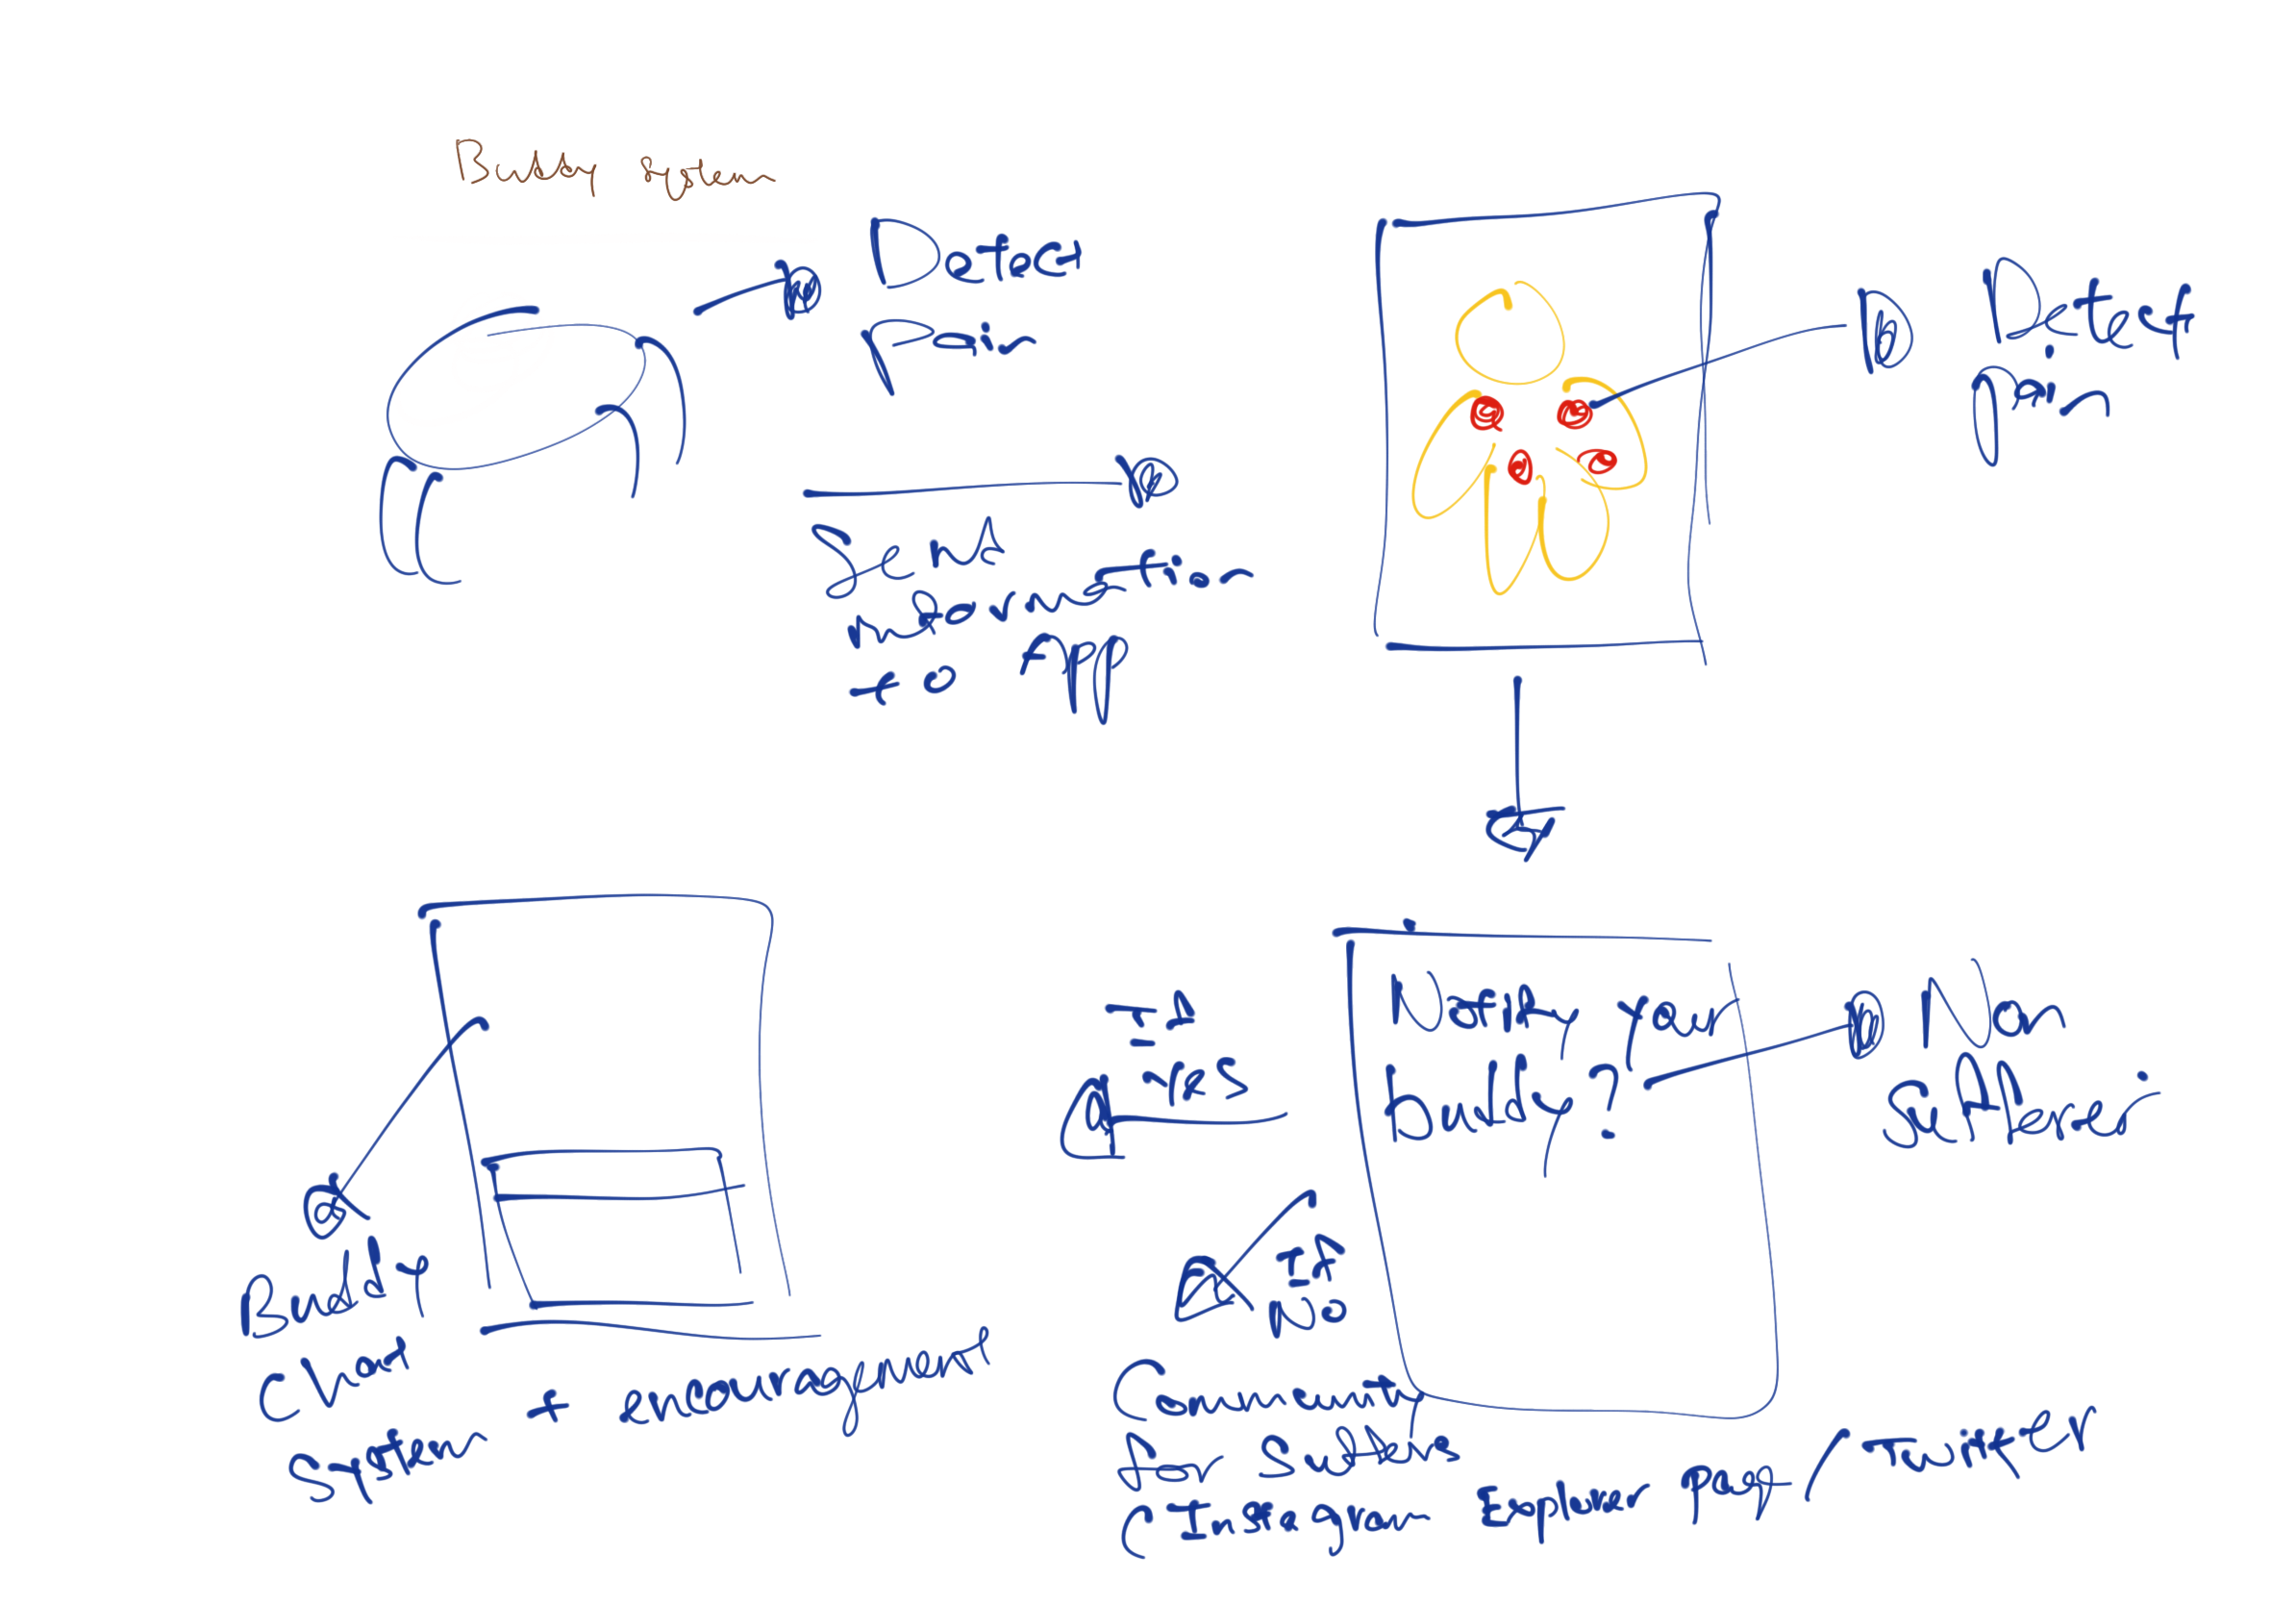 Buddy system
Detect
Pain
Sent
information
to App
Detect
pain
Notify your
buddy?
Non
Sufferer
If
Yes
If
No
Buddy
Chat
System + encouragement
Community
for Sufferers
(Instagram Explorer Page / Twitter